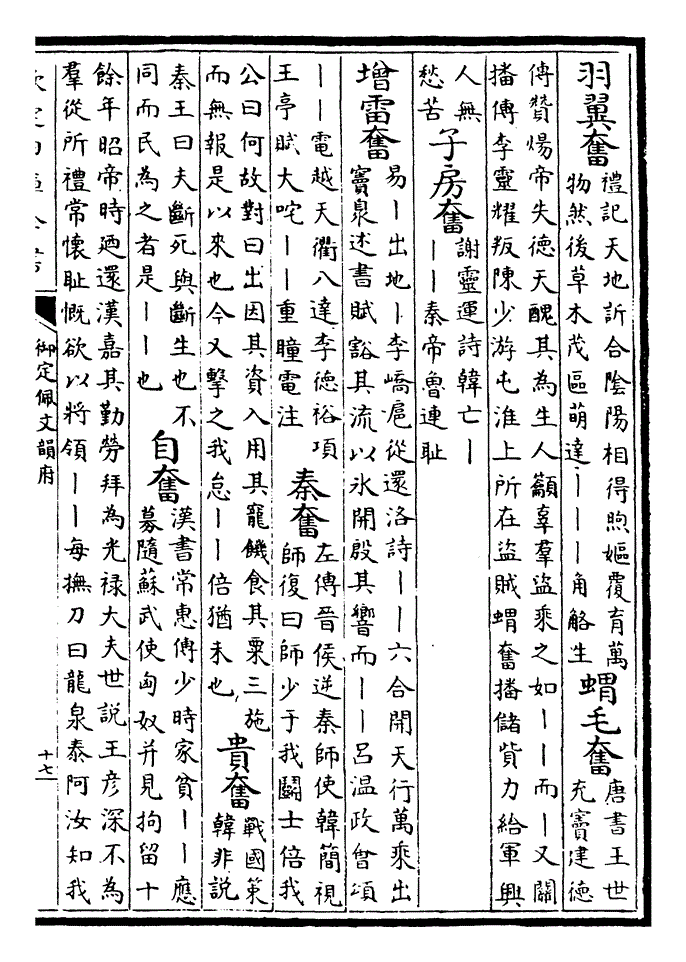 羽翼奮
禮記天地訢合陰陽相得煦嫗覆育萬
物然後草木茂區萌達｜｜｜角觡生
蝟毛奮
唐書王世
充竇建德
傳贊煬帝失德天醜其為生人籲辜羣盜乘之如｜｜而｜又關
播傳李靈耀叛陳少游屯淮上所在盜賊蝟奮播儲貲力給軍興
人無
愁苦
子房奮
謝靈運詩韓亡｜
｜｜秦帝魯連耻
增雷奮
易｜出地｜李嶠扈從還洛詩｜｜六合開天行萬乘出
竇臮述書賦豁其流以氷開殷其響而｜｜呂温政㑹頌
｜｜電越天衢八達李德裕項
王亭賦大咤｜｜重瞳電注
秦奮
左傳晉侯逆秦師使韓簡視
師復曰師少于我鬭士倍我
公曰何故對曰出因其資入用其寵饑食其粟三施
而無報是以來也今又擊之我怠｜｜倍猶未也
貴奮
戰國策
韓非說
秦王曰夫斷死與斷生也不
同而民為之者是｜｜也
自奮
漢書常惠傳少時家貧｜｜應
募隨蘇武使匈奴并見拘留十
餘年昭帝時廼還漢嘉其勤勞拜為光禄大夫世說王彦深不為
羣從所禮常懷耻慨欲以將領｜｜每撫刀曰龍泉泰阿汝知我
欽定四庫全書
御定佩文韻府
十七